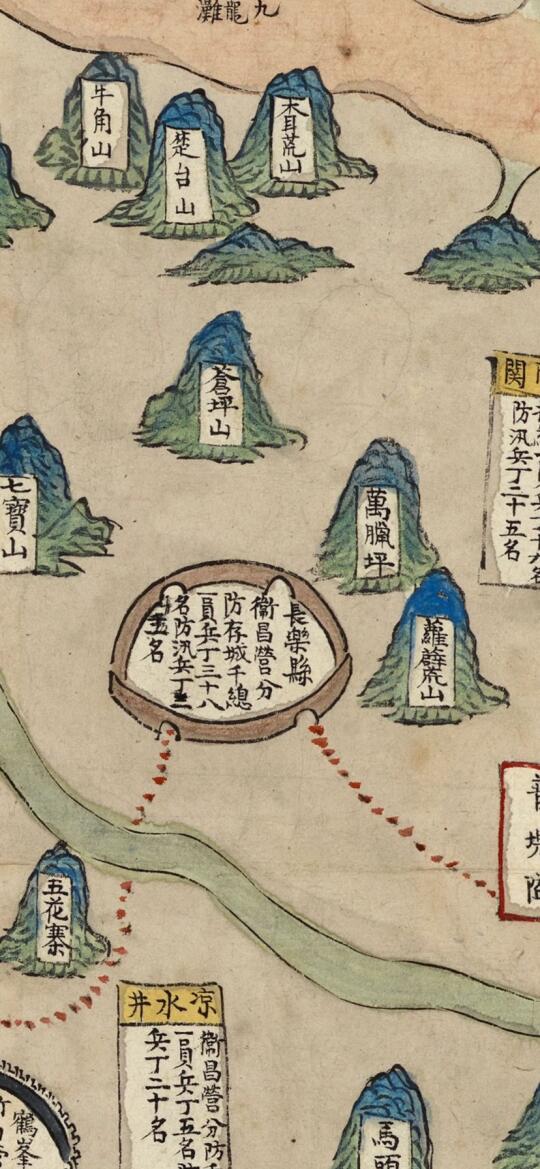 九龍灘
牛角山
楚台山
木耳荒山
蒼坪山
關
防汛兵丁二十五名
七寶山
萬臘坪
長樂縣
衛昌營分
防存城千總
一員兵丁三十八
名防汛兵丁二
十五名
蘿薜荒山
普
五花寨
凉水井
衛昌營分防
一員兵丁五名
兵丁二十名
鶴峯
馬頭